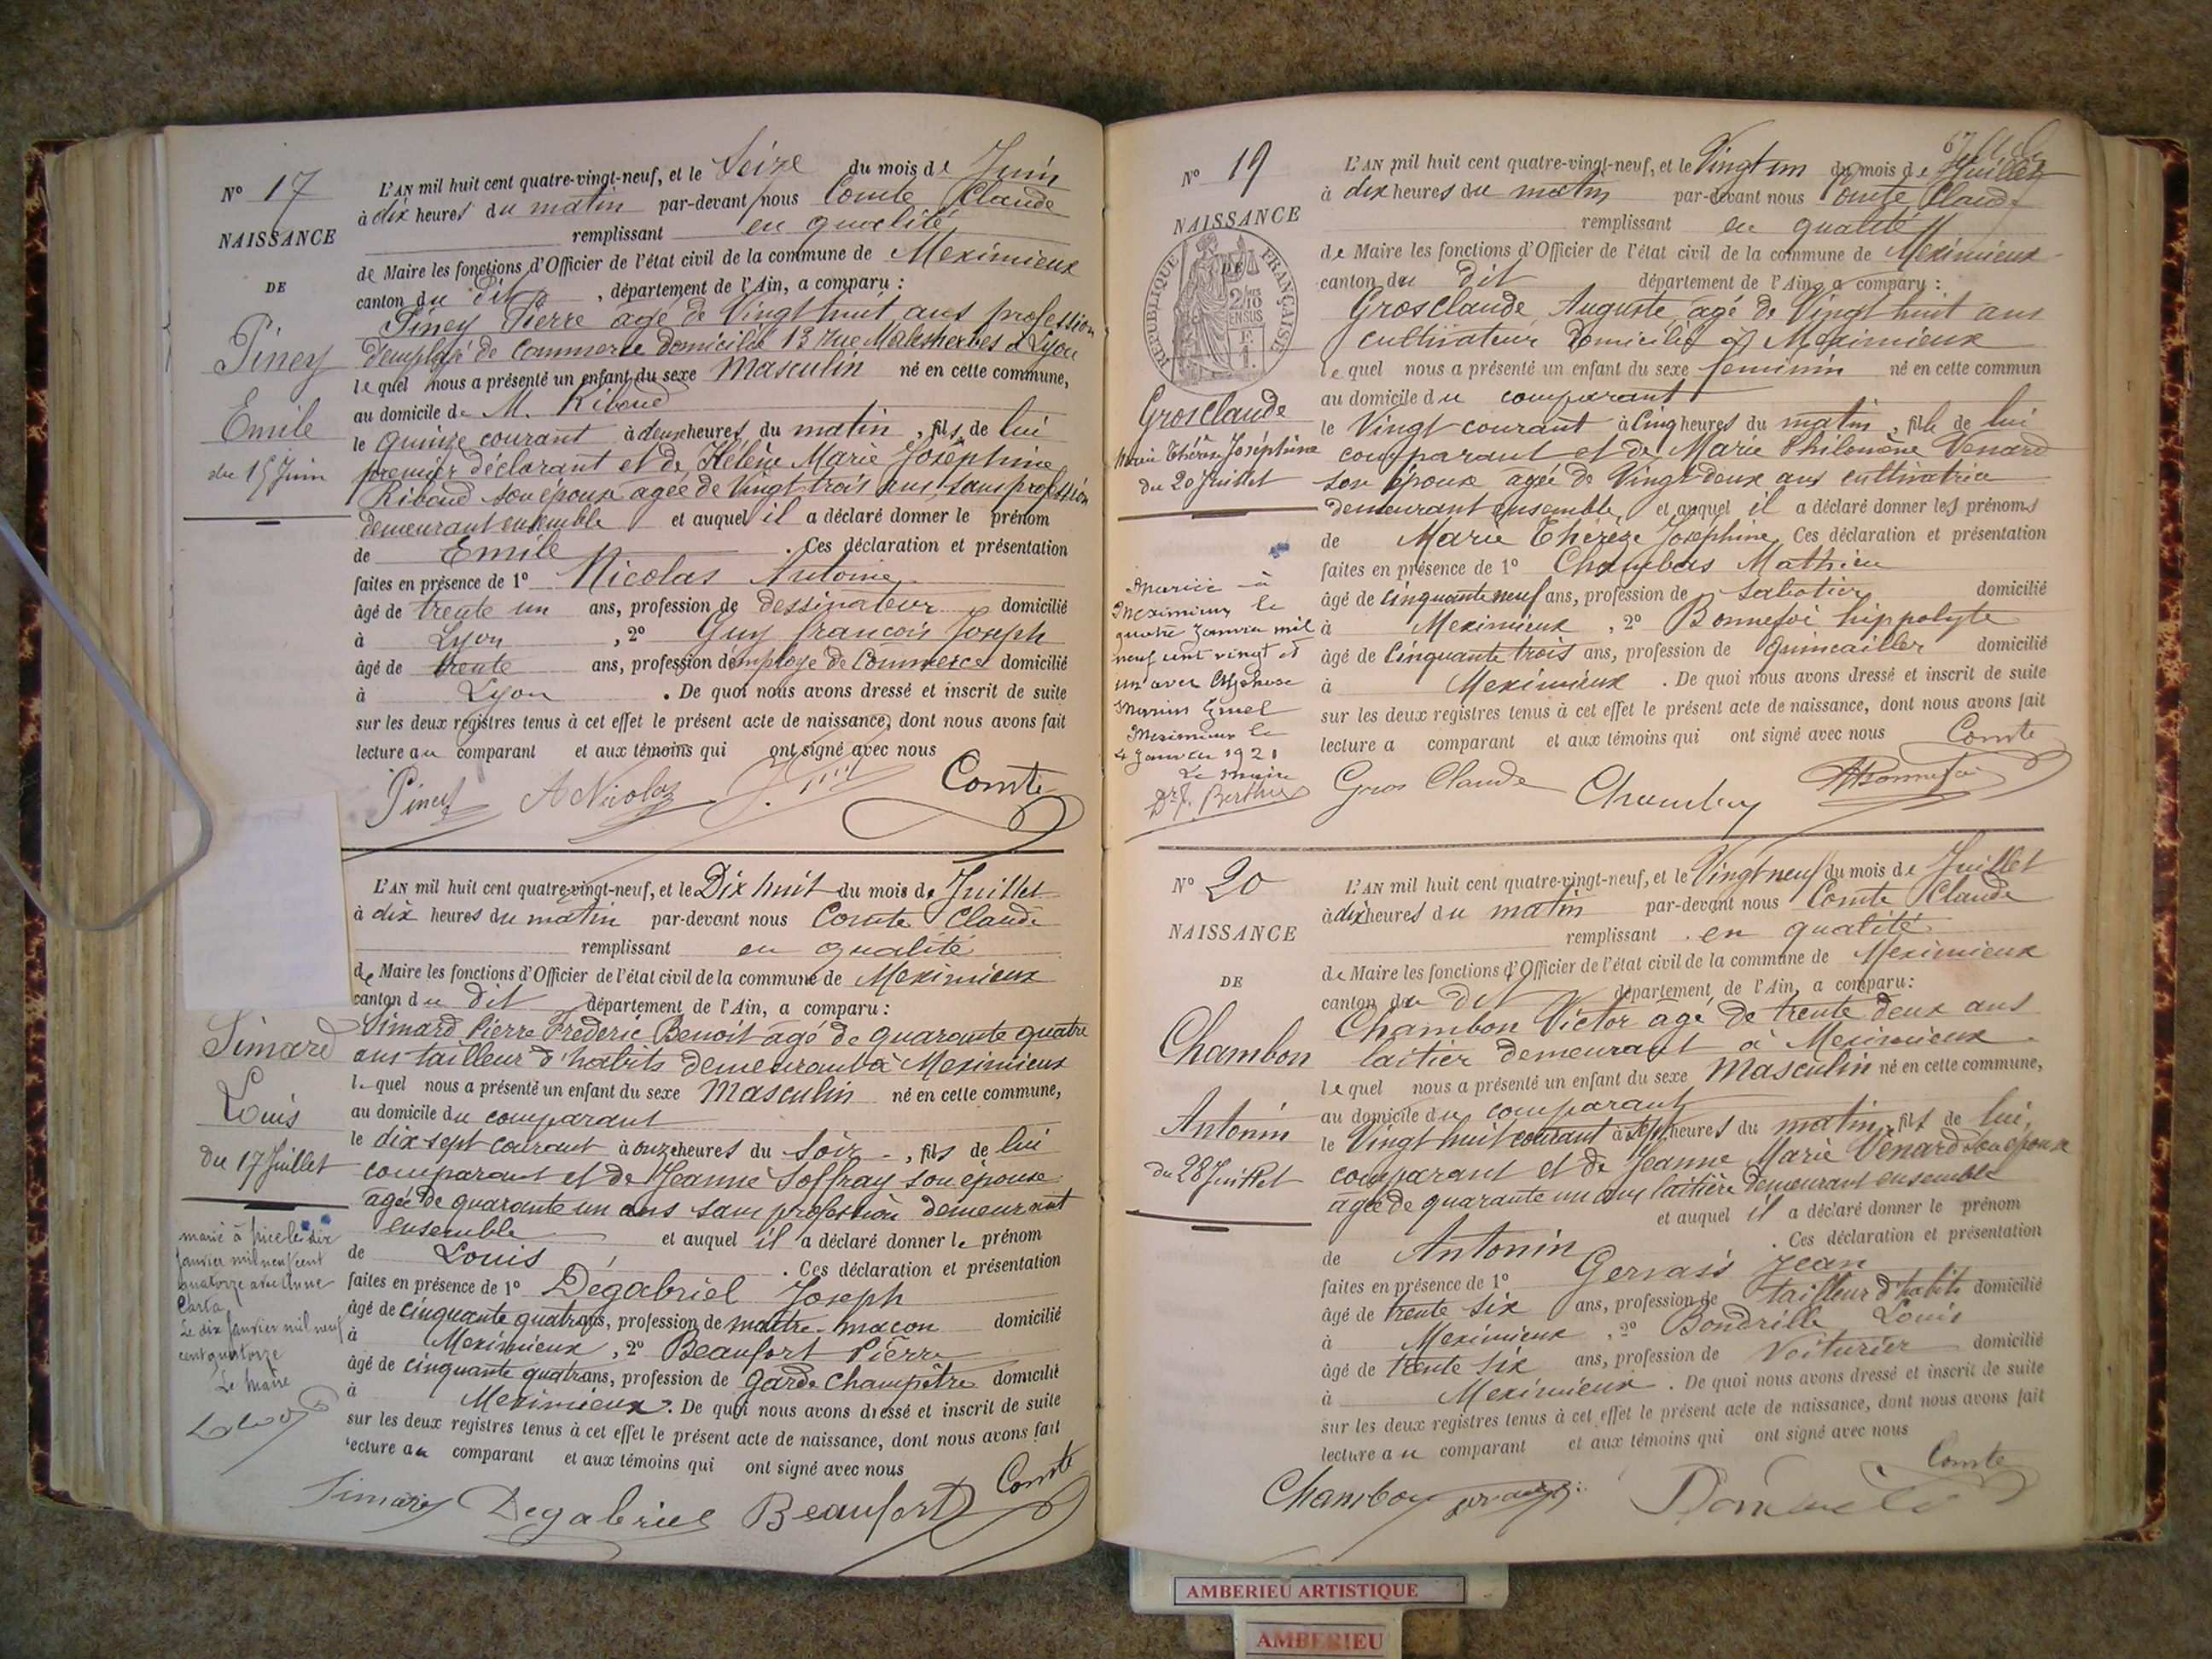 N° 17
NAISSANCE
DE
Piney
Emile
du 15 Juin
L'AN mil huit cent quatre-vingt-neuf, et le Seize du mois de Juin
à dix heures du matin par-devant nous Comte Claude
remplissant en qualité
de Maire les fonctions d'Officier de l'état civil de la commune de Meximieux
canton du dit, département de l'Ain, a comparu :
Piney Pierre agé de Vingt huit ans profession
d'employé de Commerce domicilié 13 rue Malesherbes à Lyon
lequel nous a présenté un enfant du sexe Masculin né en cette commune,
au domicile de M. Riboud
le quinze courant à deux heures du matin, fils de lui
premier déclarant et de Hélène Marie Joséphine
Riboud son épouse agée de Vingt trois ans sans profession
demeurant ensemble et auquel il a déclaré donner le prénom
de Emile. Ces déclaration et présentation
faites en présence de 1° Nicolas Antoine
âgé de trente un ans, profession de dessinateur domicilié
à Lyon, 2° Guy françois Joseph
âgé de trente ans, profession d'employé de Commerce domicilié
à Lyon. De quoi nous avons dressé et inscrit de suite
sur les deux registres tenus à cet effet le présent acte de naissance, dont nous avons fait
lecture au comparant et aux témoins qui ont signé avec nous
Piney A Nicolas Comte
Simard
Louis
du 17 Juillet
marié à Nice le dix
janvier mil neuf cent
quatorze avec Anne
Carta
Le dix janvier mil neuf
cent quatorze
Le Maire
L'AN mil huit cent quatre-vingt-neuf, et le Dix huit du mois de Juillet
à dix heures du matin par-devant nous Comte Claude
remplissant en qualité
de Maire les fonctions d'Officier de l'état civil de la commune de Meximieux
canton du dit département de l'Ain, a comparu :
Simard Pierre Fréderic Benoit agé de quarante quatre
ans tailleur d'habits demeurant à Meximieux
lequel nous a présenté un enfant du sexe Masculin né en cette commune,
au domicile du comparant
le dix-sept courant à onze heures du soir, fils de lui
comparant et de Jeanne Soffray son épouse
agée de quarante un ans sans profession demeurant
ensemble et auquel il a déclaré donner le prénom
de Louis. Ces déclaration et présentation
faites en présence de 1° Degabriel Joseph
âgé de cinquante quatre ans, profession de maître maçon domicilié
à Meximieux, 2° Beaufort Pierre
âgé de cinquante quatre ans, profession de garde Champêtre domicilié
à Meximieux. De quoi nous avons dressé et inscrit de suite
sur les deux registres tenus à cet effet le présent acte de naissance, dont nous avons fait
lecture au comparant et aux témoins qui ont signé avec nous
Simard Degabriel Beaufort Comte
N° 19
NAISSANCE
DE
RÉPUBLIQUE FRANÇAISE
GrosClaude
Marie Thérèse Joséphine
du 20 Juillet
Mariée à
Meximieux le
quatre Janvier mil
neuf cent vingt et
un avec Alphonse
Marius Gruel
Meximieux le
4 Janvier 1921
Le maire
Dr J. Berthier
L'AN mil huit cent quatre-vingt-neuf, et le Vingt un du mois de Juillet
à dix heures du matin par-devant nous Comte Claude
remplissant en qualité
de Maire les fonctions d'Officier de l'état civil de la commune de Meximieux
canton du dit département de l'Ain, a comparu :
GrosClaude Auguste agé de Vingt huit ans
cultivateur domicilié à Meximieux
lequel nous a présenté un enfant du sexe feminin né en cette commun
au domicile du comparant
le Vingt courant à Cinq heures du matin, fille de lui
comparant et de Marie Philomène Venard
son épouse agée de Vingt deux ans cultivatrice
demeurant ensemble et auquel il a déclaré donner les prénoms
de Marie Thérèse Joséphine Ces déclaration et présentation
faites en présence de 1° Mathieu
âgé de Cinquante neuf ans, profession de sabotier domicilié
à Meximieux, 2° Bonnefoi hippolyte
âgé de Cinquante trois ans, profession de quincailler domicilié
à Meximieux. De quoi nous avons dressé et inscrit de suite
sur les deux registres tenus à cet effet le présent acte de naissance, dont nous avons fait
lecture a comparant et aux témoins qui ont signé avec nous
Gros Claude Bonnefoi Comte
N° 20
NAISSANCE
DE
Chambon
Antonin
du 28 Juillet
L'AN mil huit cent quatre-vingt-neuf, et le Vingt neuf du mois de Juillet
à dix heures du matin par-devant nous Comte Claude
remplissant en qualité
de Maire les fonctions d'Officier de l'état civil de la commune de Meximieux
canton du dit département de l'Ain, a comparu :
Chambon Victor agé de trente deux ans
laitier demeurant à Meximieux
lequel nous a présenté un enfant du sexe Masculin né en cette commune,
au domicile du comparant
le Vingt huit courant à sept heures du matin, fils de lui,
comparant et de Jeanne Marie Venard son épouse
agée de quarante un ans laitière demeurant ensemble
et auquel il a déclaré donner le prénom
de Antonin. Ces déclaration et présentation
faites en présence de 1° Gervais Jean
âgé de trente six ans, profession de tailleur d'habits domicilié
à Meximieux, 2° Bondrille Louis
âgé de trente six ans, profession de Voiturier domicilié
à Meximieux. De quoi nous avons dressé et inscrit de suite
sur les deux registres tenus à cet effet le présent acte de naissance, dont nous avons fait
lecture au comparant et aux témoins qui ont signé avec nous
Chambon Comte
AMBERIEU ARTISTIQUE
AMBERIEU